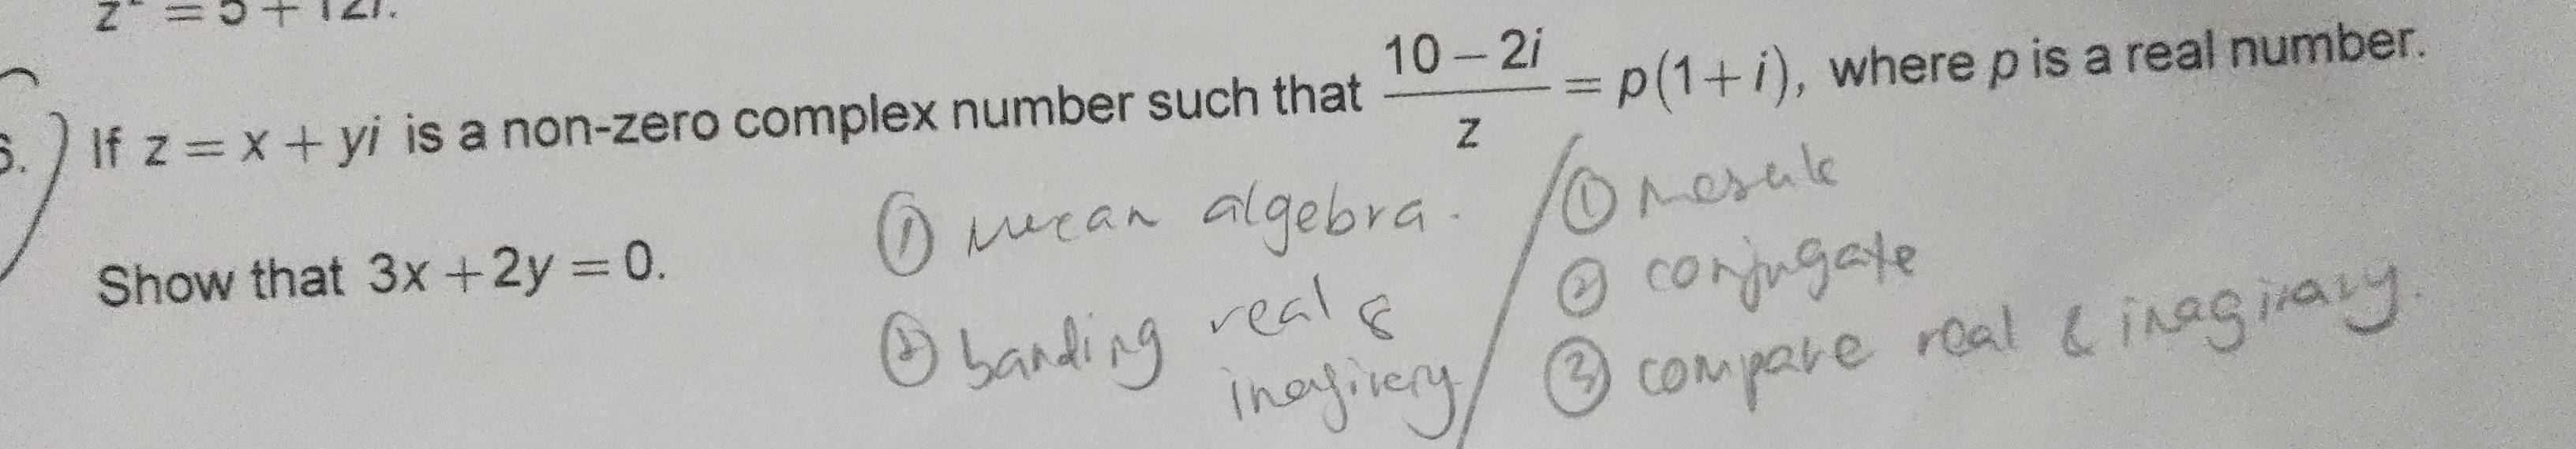 z² = 5 + 12i.
If z = x + yi is a non-zero complex number such that (10 − 2i)/z = p(1 + i), where p is a real number.
Show that 3x + 2y = 0.
① algebra.
② banding real &
imaginary
①
② conjugate
③ compare real & imaginary.